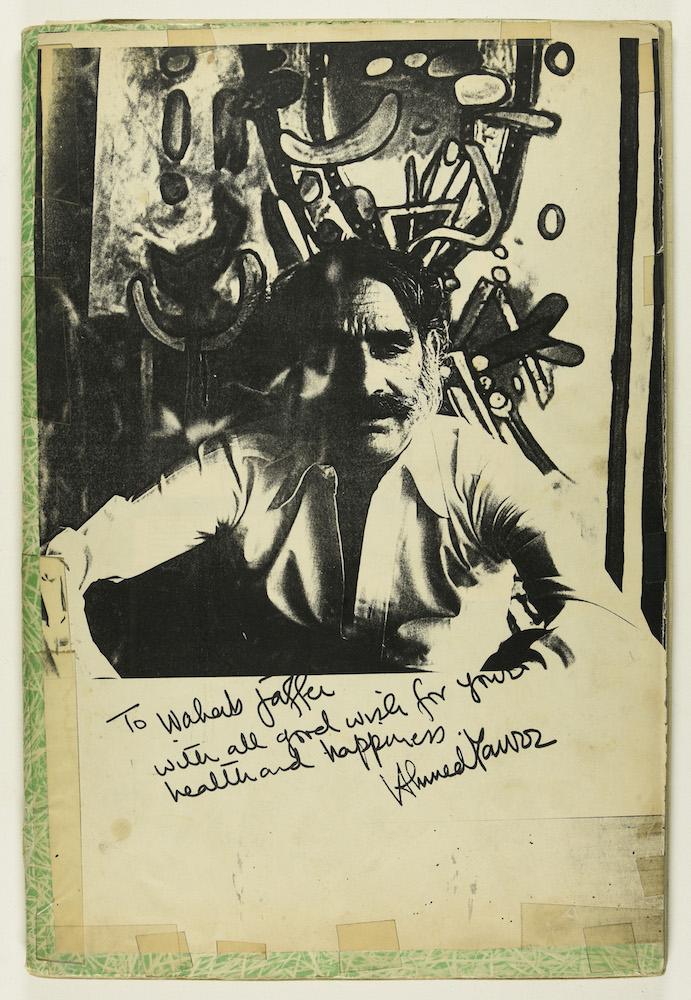 To Wahab Jaffer
with all good wish for your
health and happiness
Ahmed Parvez